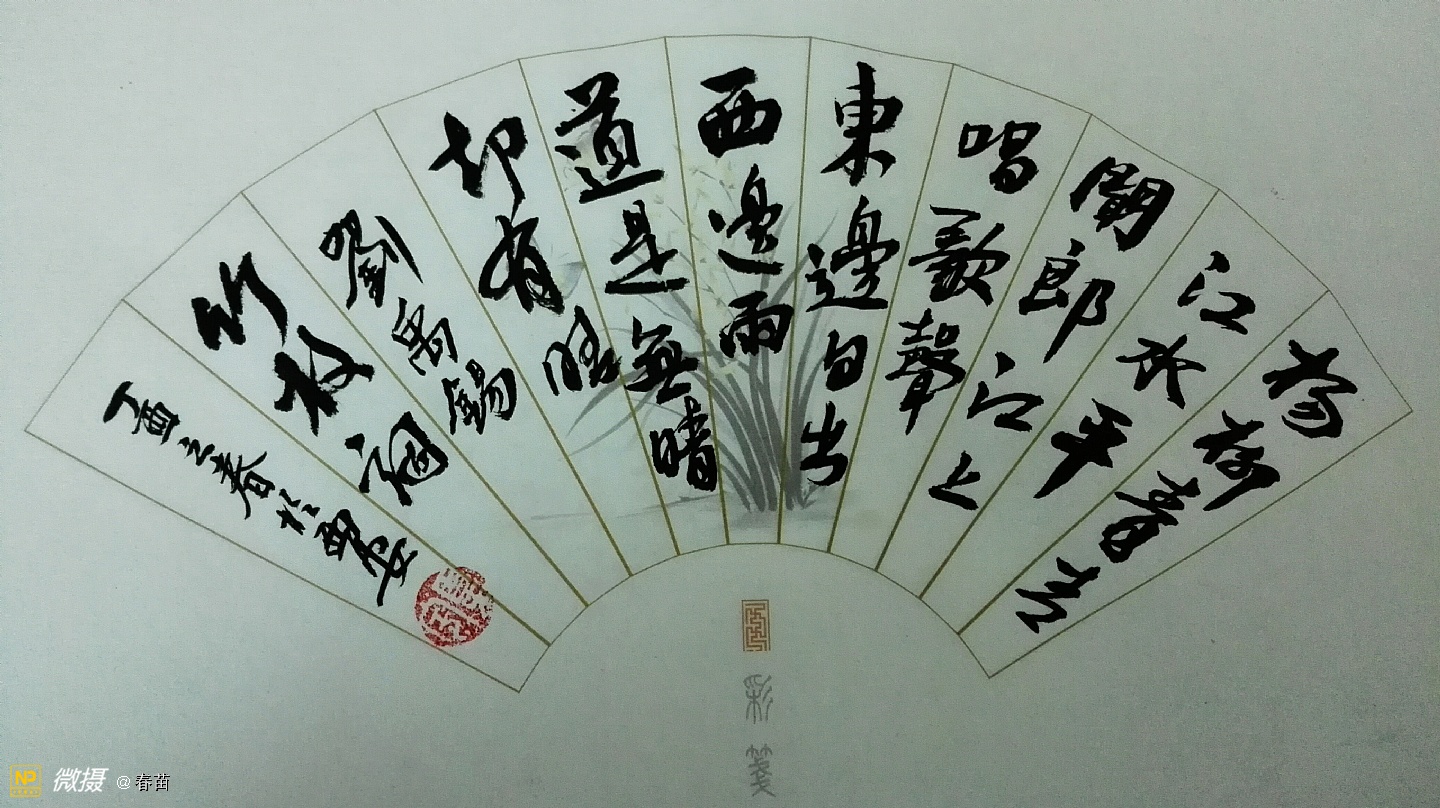 楊柳青青
江水平
聞郎江上
唱歌聲
東邊日出
西邊雨
道是無晴
却有晴
劉禹錫
竹枝詞
丁酉之春於
彩箋
NP 微摄 @春苗